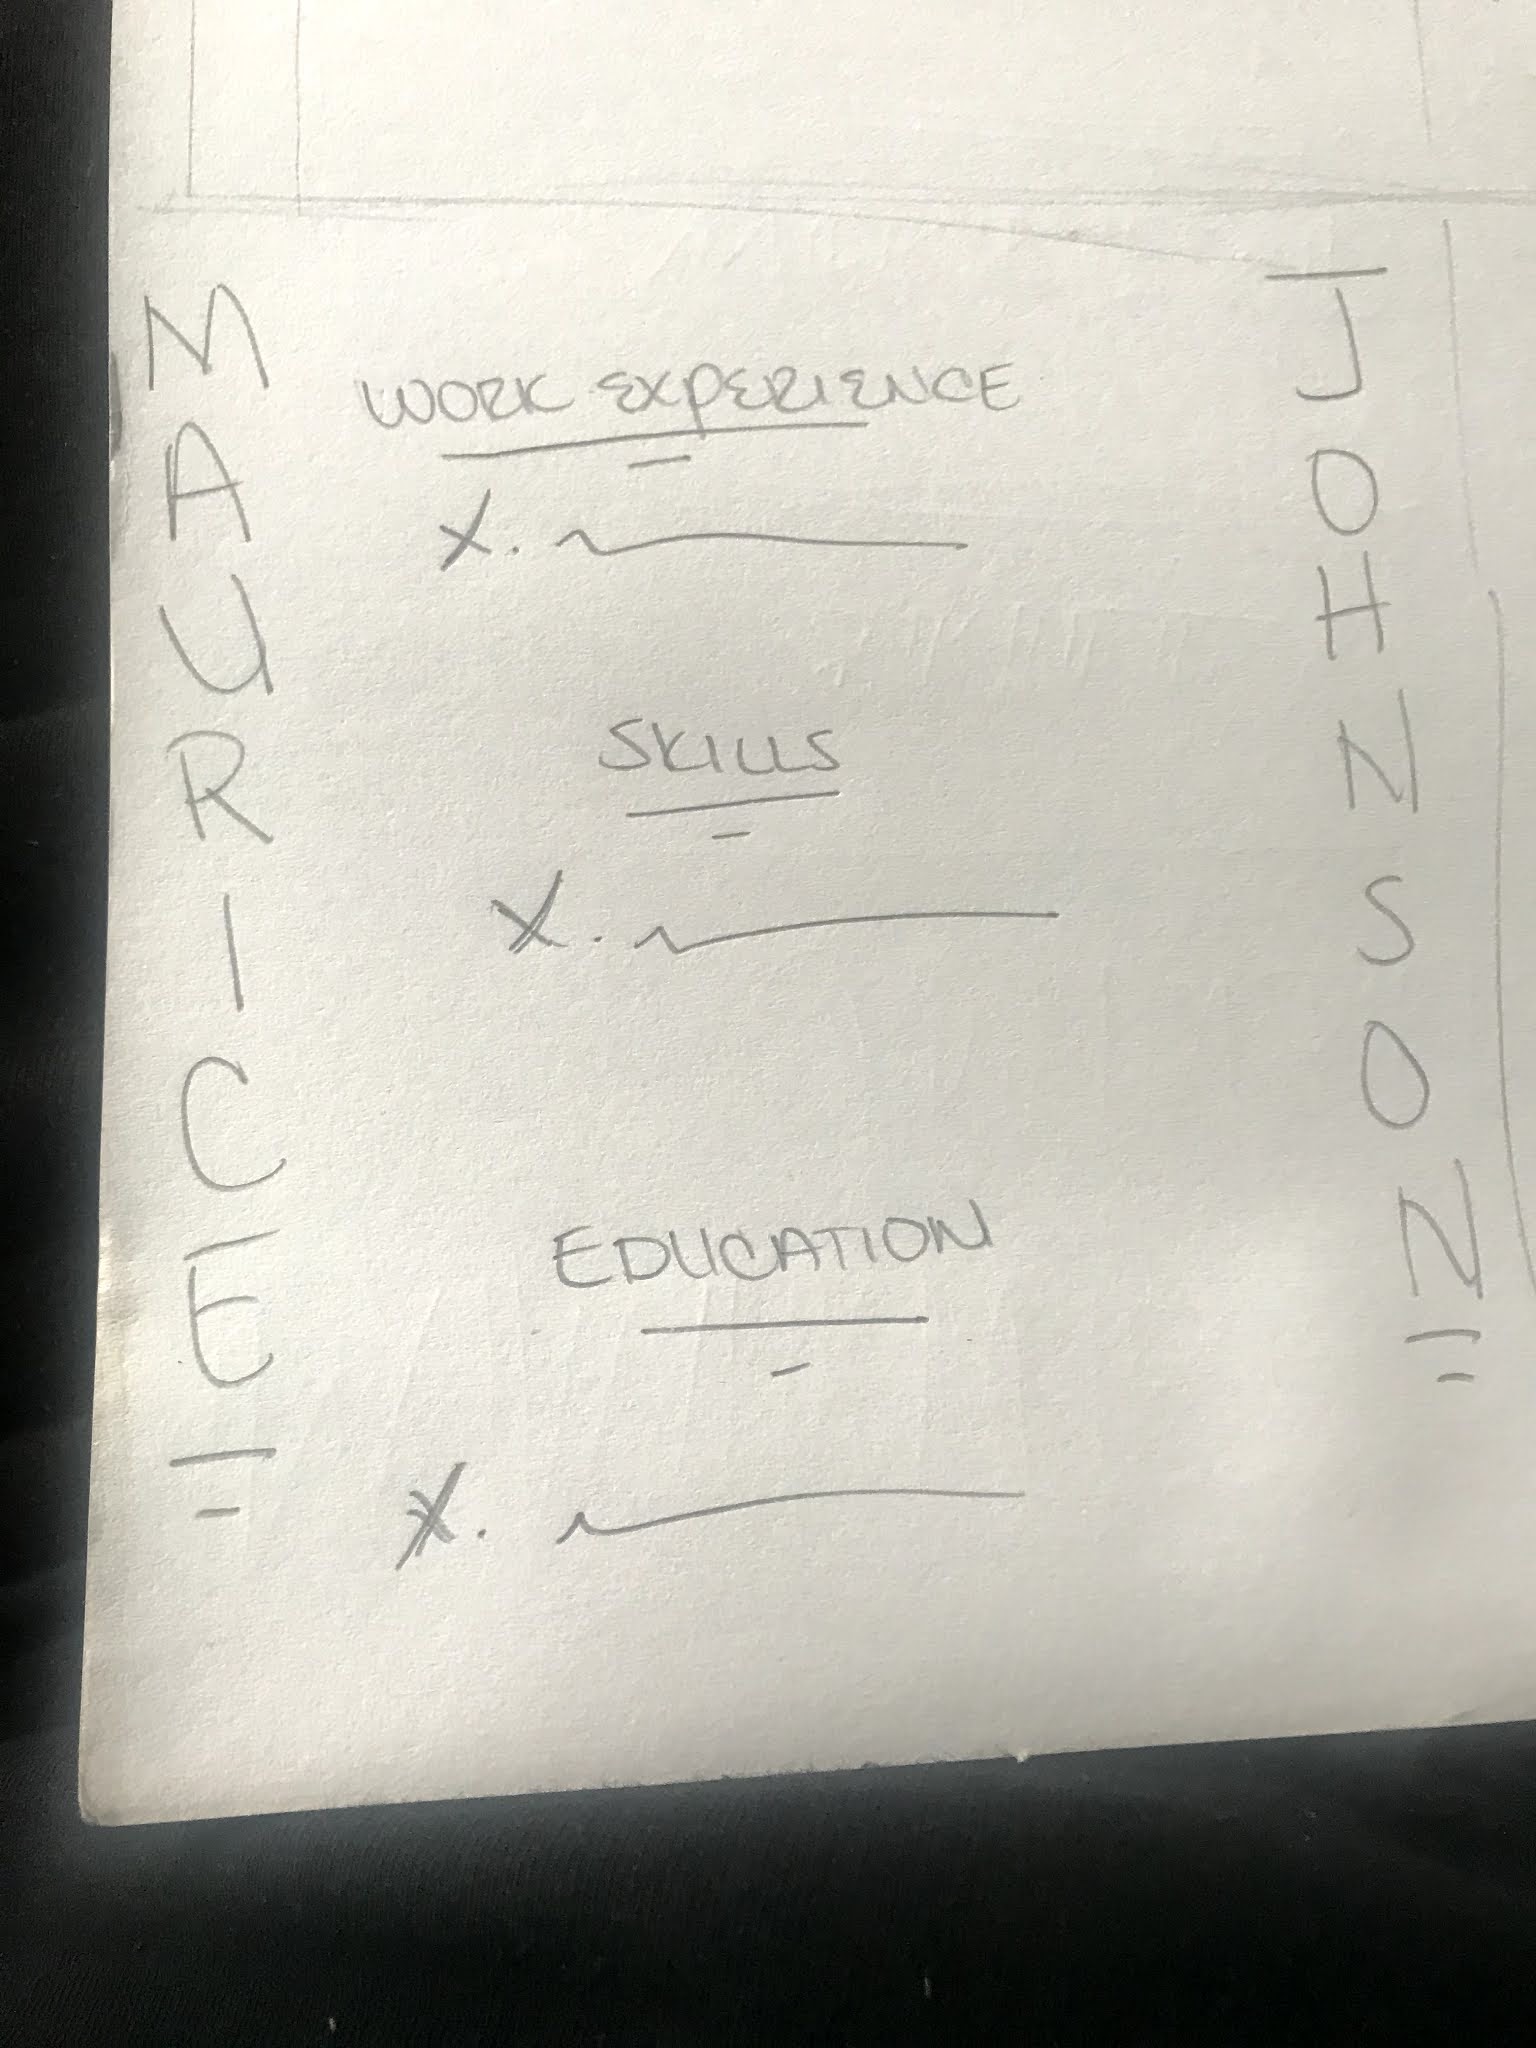 MAURICE
WORK EXPERIENCE
X.
SKILLS
X.
EDUCATION
X.
JOHNSON